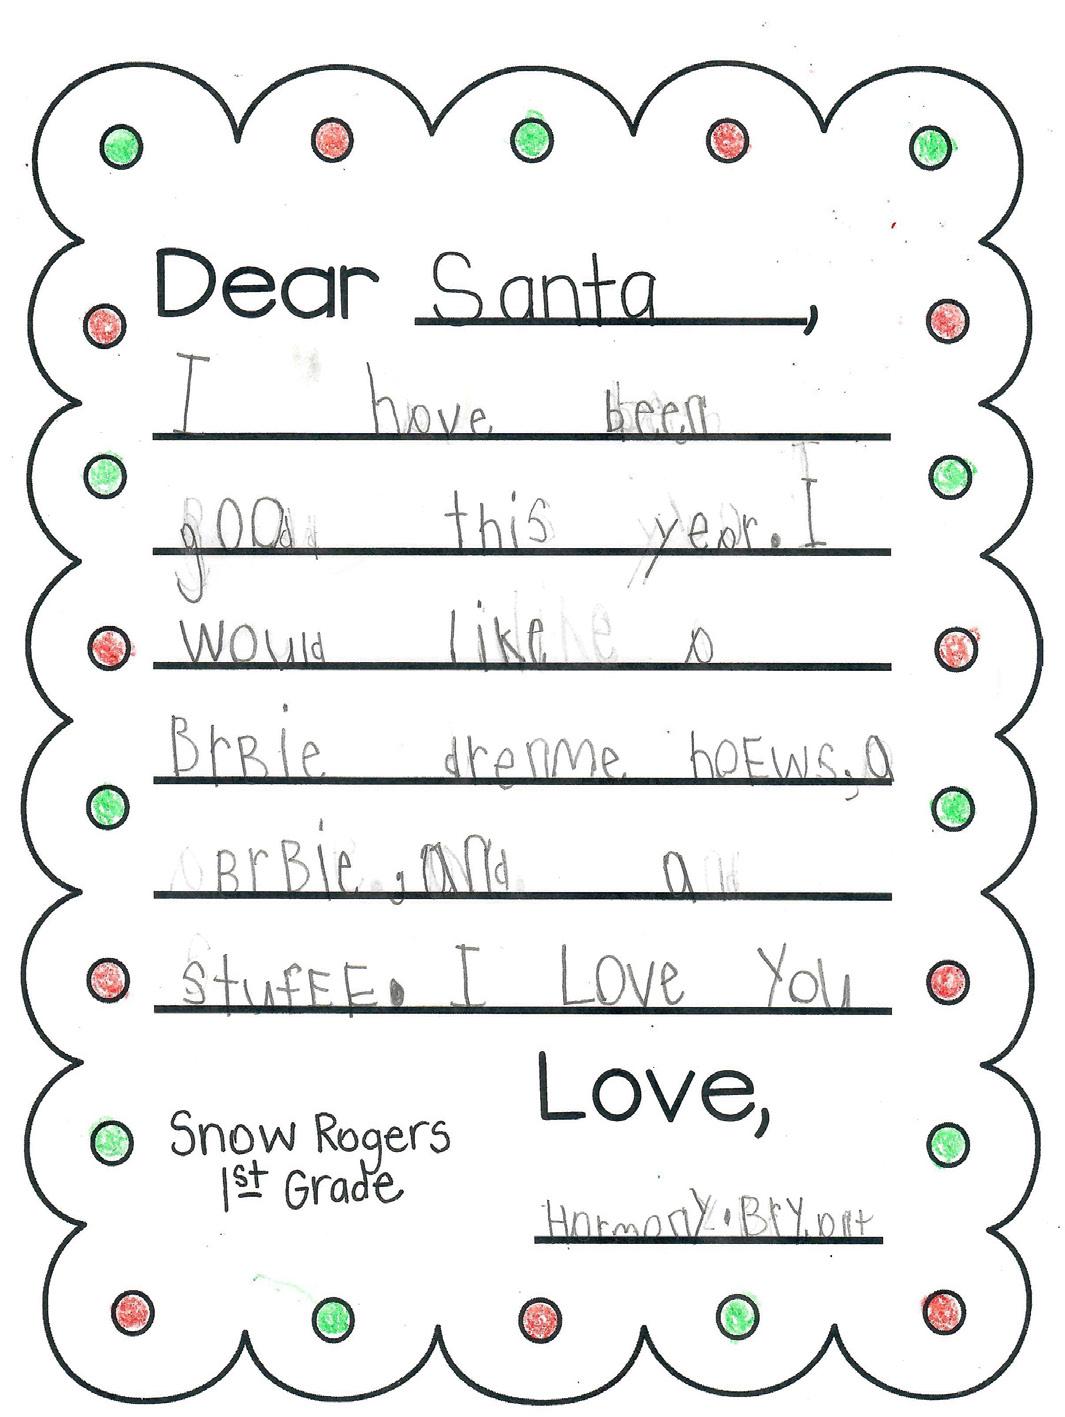 Dear Santa,
I have been
good this year. I
would like a
BrBie drenme hoEws, a
BrBie, and a
stufEE. I Love You
Love,
Snow Rogers
1st Grade
Harmony. Bryant